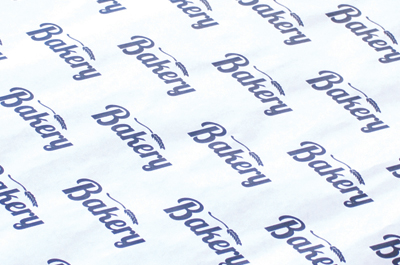 Bakery
Bakery
Bakery
Bakery
Bakery
Bakery
Bakery
Bakery
Bakery
Bakery
Bakery
Bakery
Bakery
Bakery
Bakery